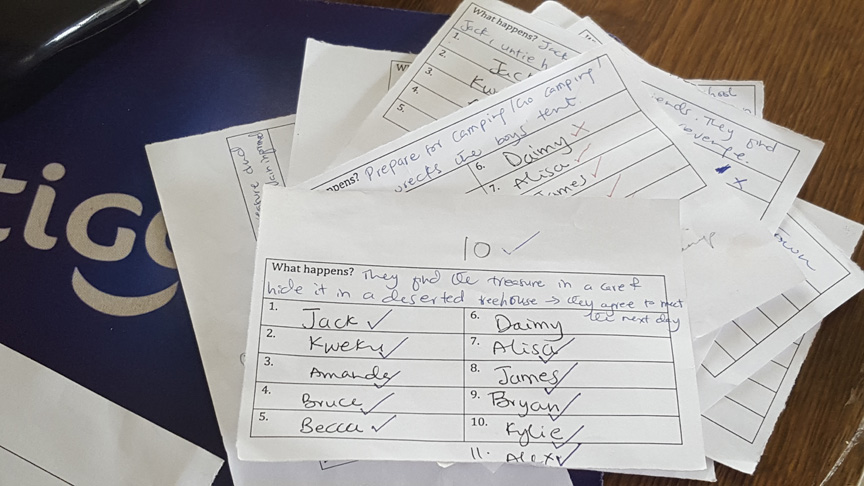 tigo
What happens? Jack
Jack, untie h
1.
2. Jack
3. Kw
4.
5.
W
hool
ends. They find
revenge.
x
treasure and
pens? Prepare for camping/Go camping!
wrecks the boys tent
6. Daimy x
7. Alisa ✓
James ✓
10 ✓
What happens? They find the treasure in a cave &
hide it in a deserted treehouse → they agree to meet
the next day
1. Jack ✓
2. Kweku ✓
3. Amanda ✓
4. Bruce ✓
5. Becca ✓
6. Daimy
7. Alisa ✓
8. James ✓
9. Bryan ✓
10. Kylie ✓
11. Alex ✓